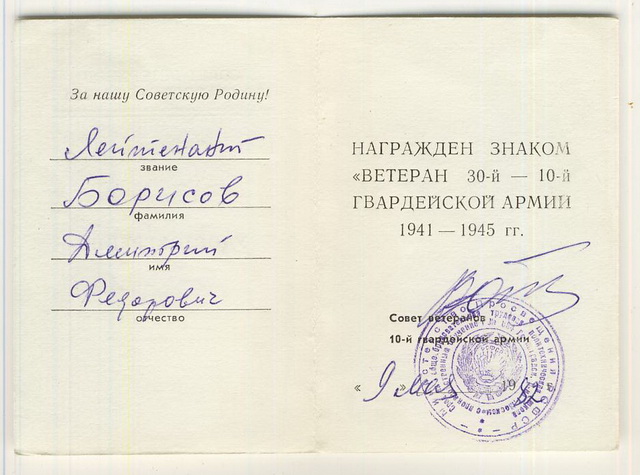 За нашу Советскую Родину!
Лейтенант
звание
Борисов
фамилия
Дмитрий
имя
Федорович
отчество
НАГРАЖДЕН ЗНАКОМ
«ВЕТЕРАН 30-й — 10-й
ГВАРДЕЙСКОЙ АРМИИ
1941 — 1945 гг.
Совет ветеранов
10-й гвардейской армии
« 9 » мая 1982 г.
Министерство просвещения РСФСР